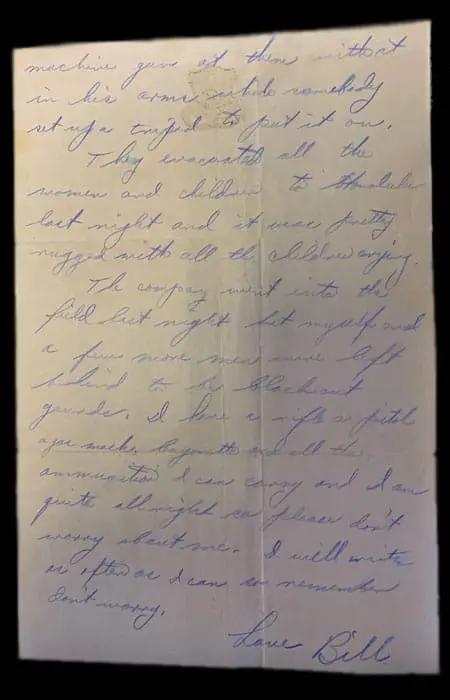 machine gun at them with it
in his arms while somebody
set up a tripod to put it on.
They evacuated all the
women and children to Honolulu
last night and it was pretty
rugged with all the children crying.
The company went into the
field last night but myself and
a few more men were left
behind to be blackout
guards. I have a rifle a pistol
a gas mask, bayonette and all the
ammunition I can carry and I am
quite all right so please don't
worry about me. I will write
as often as I can so remember
don't worry.
Love Bill